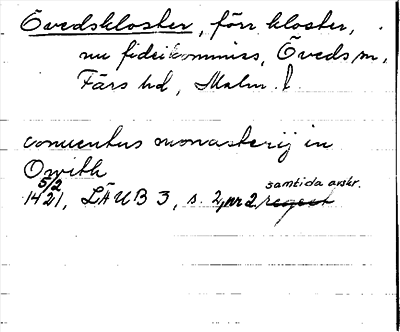 Övedskloster, förr kloster,
nu fideikommiss, Öveds sn,
Färs hd, Malm. l.
conuentus monasterij in
Owith
5/2 1421, LÄUB 3, s. 2, nr 2, samtida avskr. regest